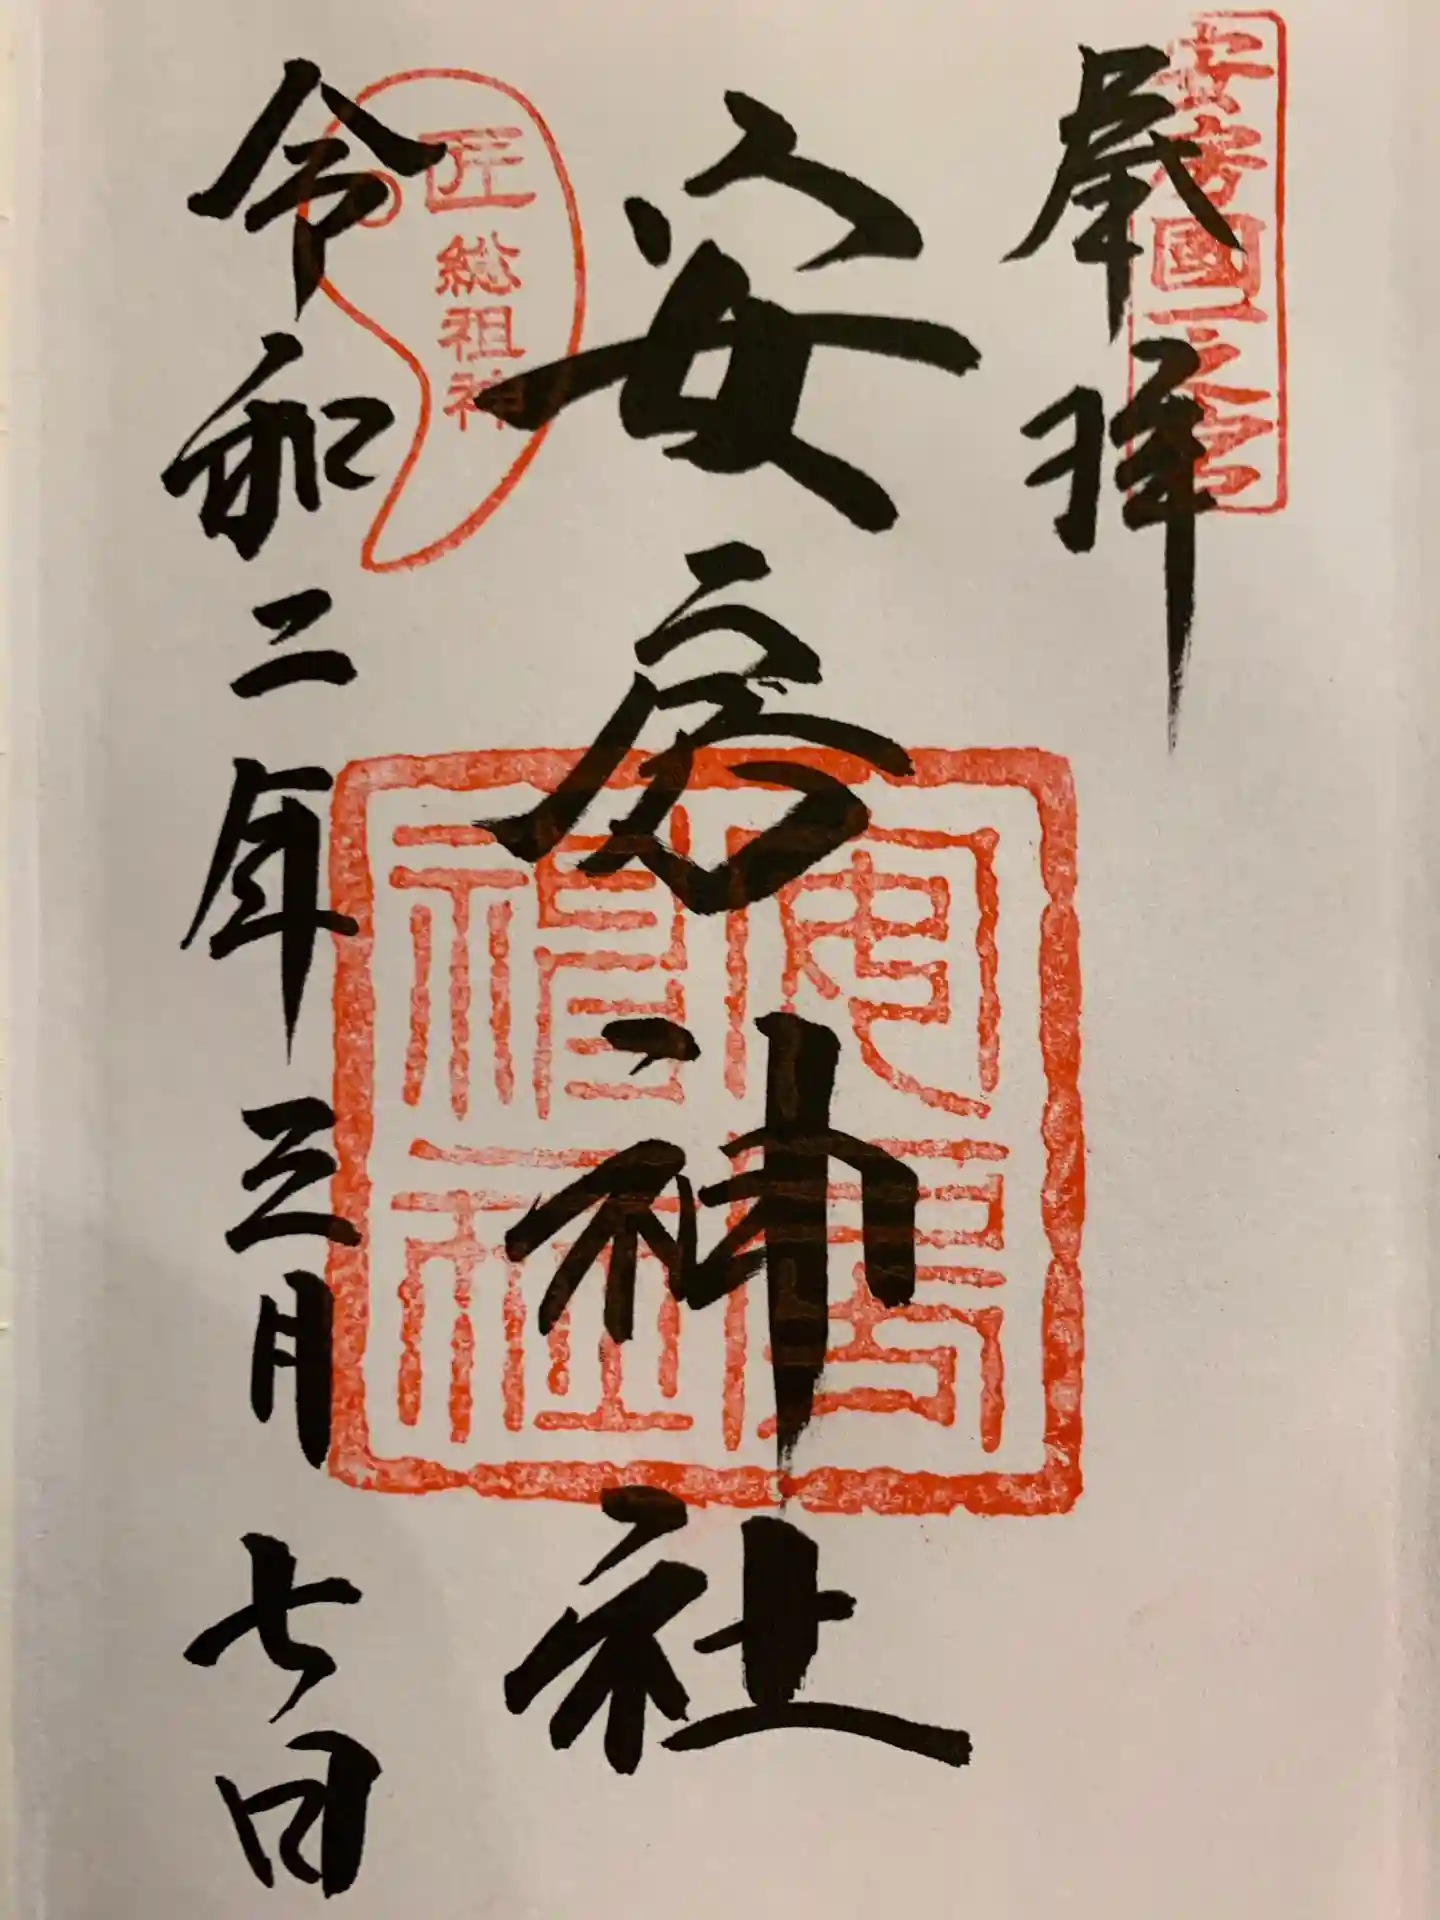 安房國一之宮
奉拝
安房神社
安房神社
匠総祖神
令和二年三月七日